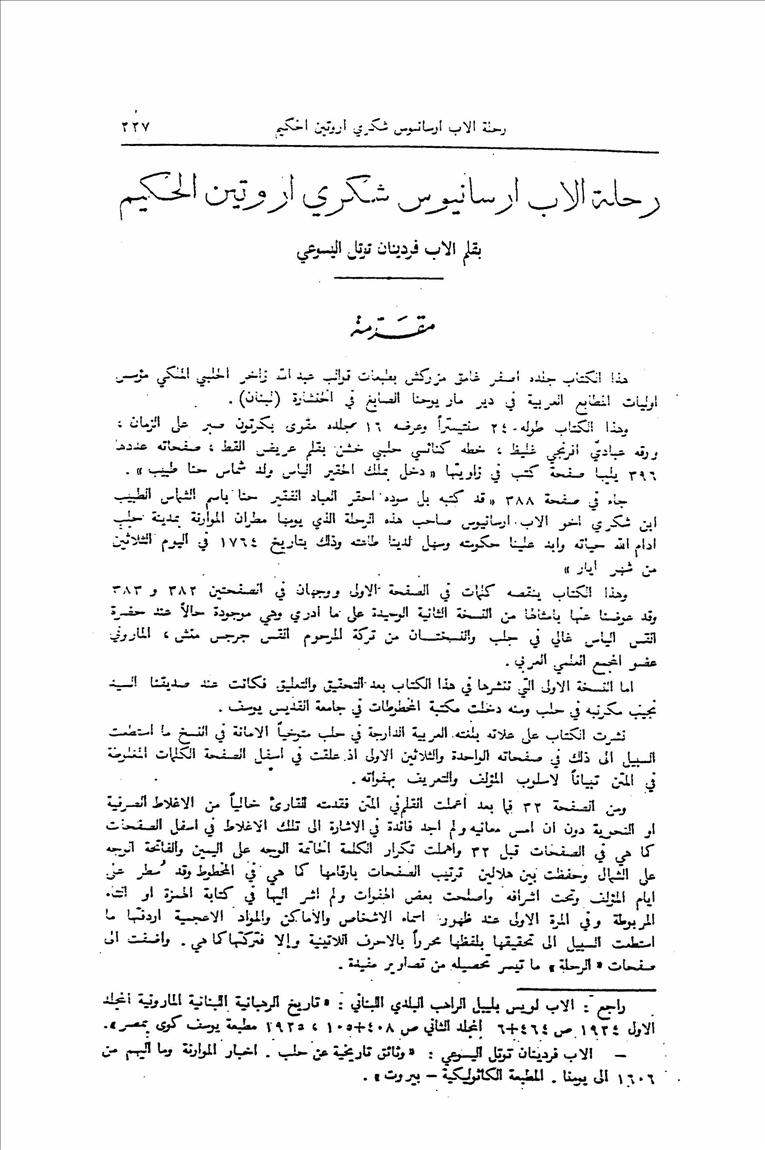 رحلة الاب ارسانيوس شكري اروتين الحكيم ٢٢٧
رحلة الاب ارسانيوس شكري اروتين الحكيم
بقلم الاب فردينان توتل اليسوعي
مقدّمة
هذا الكتاب جلده اصفر غامق مزركش بطبعات قوالب عبد الله زاخر الحلبي الملكي مؤسس
اوليات المطابع العربية في دير مار يوحنا الصايغ في الخنشارة (لبنان) .
وهذا الكتاب طوله ٢٤ سنتيمتراً وعرضه ١٦ مجلده مقوى بكرتون صبر على الزمان ،
ورقه عباديّ افرنجي غليظ ، خطه كنائسي حلبي خشن بقلم عريض القط ، صفحاته عددها
٣٩٦ يليها صفحة كتب في زاويتها « دخل بملك الحقير الياس ولد شماس حنا طبيب » .
جاء في صفحة ٣٨٨ « قد كتبه بل سوده احقر العباد الفقير حنا باسم الشماس الطبيب
ابن شكري اخو الاب ارسانيوس صاحب هذه الرحلة الذي يومها مطران الموارنة بمدينة حلب
ادام الله حياته وابد علينا حكومته وسهل لدينا طاعته وذلك بتاريخ ١٧٦٤ في اليوم الثلاثين
من شهر ايار »
وهذا الكتاب ينقصه كلمات في الصفحة الاولى ووجهان في الصفحتين ٣٨٢ و ٣٨٣
وقد عوضنا عنها بامثالها من النسخة الثانية الوحيدة على ما أدري وهي موجودة حالاً عند حضرة
القس الياس غالي في حلب والنسختان من تركة المرحوم القس جرجس منش ، الماروني
عضو المجمع العلمي العربي .
اما النسخة الاولى التي ننشرها في هذا الكتاب بعد التحقيق والتعليق فكانت عند صديقنا السيد
نجيب مكربنه في حلب ومنه دخلت مكتبة المخطوطات في جامعة القديس يوسف .
نشرت الكتاب على علاته بلغته العربية الدارجة في حلب متوخياً الامانة في النسخ ما استطعت
السبيل الى ذلك في صفحاته الواحدة والثلاثين الاولى اذ علقت في اسفل الصفحة الكلمات المغلوطة
في المتن تبياناً لاسلوب المؤلف والتعريف بهفواته .
ومن الصفحة ٣٢ فما بعد اعملت القلم في المتن فقدمته للقارئ خالياً من الاغلاط الصرفية
او النحوية دون ان امس معانيه ولم اجد فائدة في الاشارة الى تلك الاغلاط في اسفل الصفحات
كما هي في الصفحات قبل ٣٢ واهملت تكرار الكلمة الخاتمة الوجه على اليمين والفاتحة الوجه
على الشمال وحفظت بين هلالين ترتيب الصفحات بارقامها كما هي في المخطوط وقد سُطر على
ايام المؤلف وتحت اشرافه واصلحت بعض الهفوات ولم اشر اليها في كتابة الهمزة او التاء
المربوطة وفي المرة الاولى عند ظهور اسماء الاشخاص والأماكن والمواد الاعجمية اردفتها ما
استطعت السبيل الى تحقيقها بلفظها محرراً بالاحرف اللاتينية وإلا فتركتها كما هي . واضفت الى
صفحات « الرحلة » ما تيسر تحصيله من تصاوير مفيدة .
راجع : الاب لويس بليبل الراهب البلدي اللبناني : « تاريخ الرهبانية اللبنانية المارونية المجلد
الاول ١٩٢٤ ص ٤٦٤+٦ المجلد الثاني ص ٤٠٨+١٠٥ ، ١٩٢٥ مطبعة يوسف كوى بمصر » .
– الاب فردينان توتل اليسوعي : « وثائق تاريخية عن حلب . اخبار الموارنة وما اليهم من
١٦٠٦ الى يومنا . المطبعة الكاثوليكية – بيروت » .